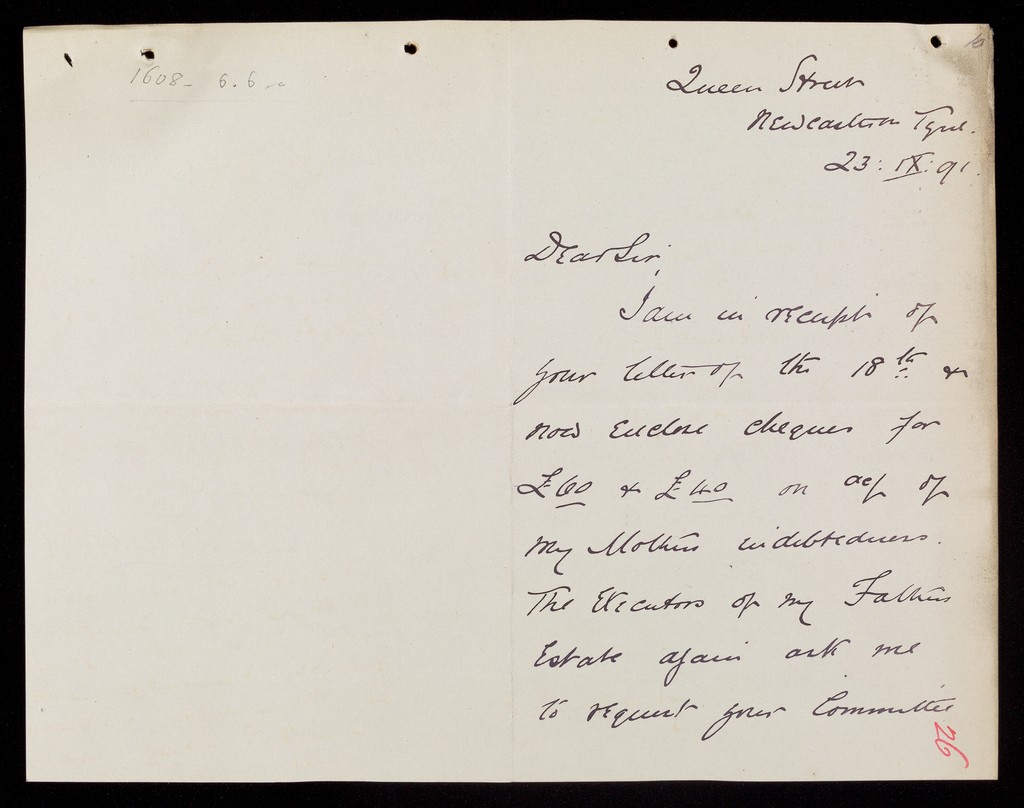 1608- 6.6
Queen Street
Newcastle on Tyne.
23: IX: 91.
Dear Sir,
I am in receipt of
your letter of the 18th &
now enclose cheques for
£60 & £40 on a/c of
my Mothers indebtedness.
The Executors of my Fathers
Estate again ask me
to request your Committee
26